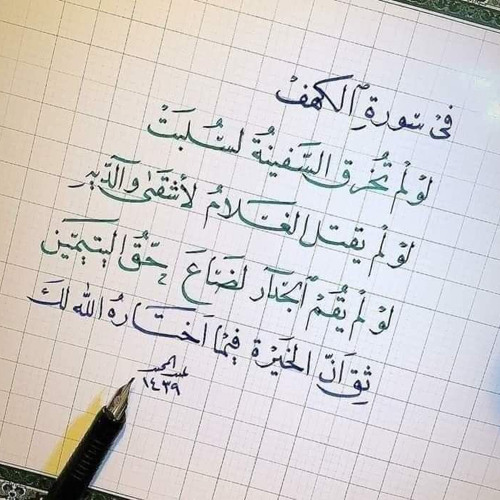 في سورة ٱلكهف
لو لم تُخرق السَّفينةُ لسُلبَتْ
لو لم يقتل الغلامُ لأشقىٰ والدَيهِ
لو لم يُقَمْ ٱلجدَار لضَاعَ حقُّ اليتيمَين
ثِق أنّ الخيَرة فيما اختارهُ الله لكَ
عبد المجيد
١٤٣٩